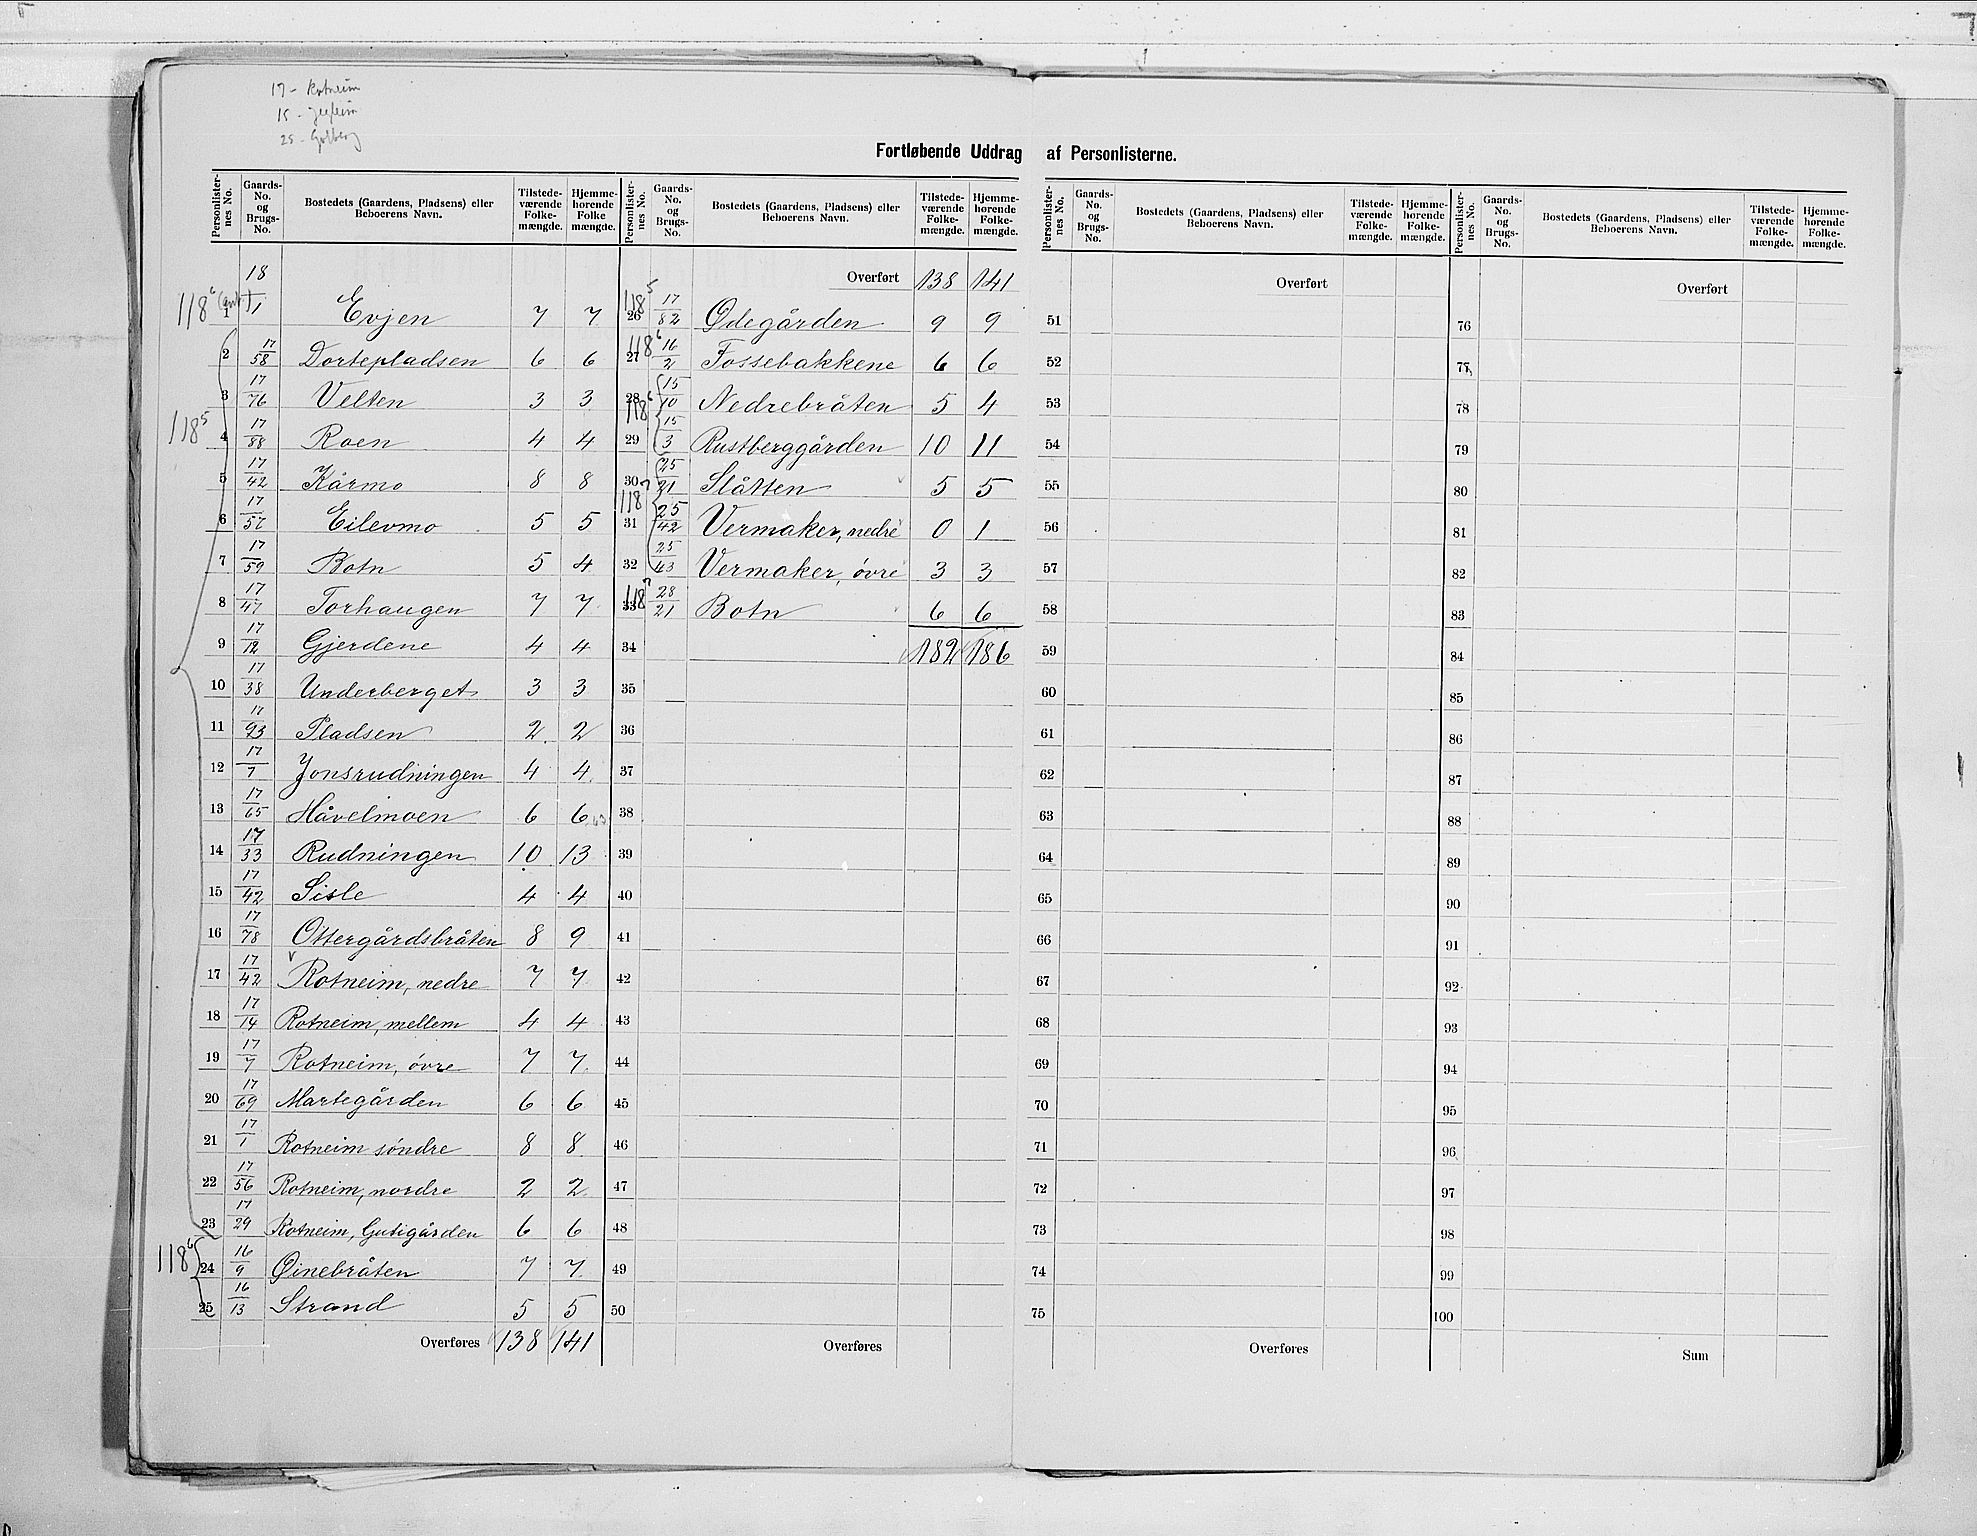 17 - Rotneim
15 -
25 - Golberg
Fortløbende Uddrag af Personlisterne.
Personlister-nes No. Gaards-No. og Brugs-No. Bostedets (Gaardens, Pladsens) eller Beboerens Navn. Tilstede-værende Folke-mængde. Hjemme-hørende Folke mængde.
118⁶ 1 18/1 Evjen 7 7
2 17/58 Dortepladsen 6 6
3 17/76 Velten 3 3
118⁵
4 17/88 Roen 4 4
5 17/42 Kårmo 8 8
6 17/57 Eilevmo 5 5
7 17/59 Botn 5 4
8 17/47 Torhaugen 7 7
9 17/12 Gjerdene 4 4
10 17/38 Underberget 3 3
11 17/93 Pladsen 2 2
12 17/7 Jonsrudningen 4 4
13 17/65 Håvelmoen 6 6
14 17/33 Rudningen 10 13
15 17/42 Sisle 4 4
16 17/78 Ottergårdsbråten 8 9
17 17/42 Rotneim, nedre 7 7
18 17/14 Rotneim, mellem 4 4
19 17/7 Rotneim, övre 7 7
20 17/69 Martegården 6 6
21 17/1 Rotneim söndre 8 8
22 17/56 Rotneim, nordre 2 2
23 17/29 Rotneim, Gutigården 6 6
118⁶ 24 16/9 Øinebråten 7 7
25 16/13 Strand 5 5
Overføres 138 141
Personlister-nes No. Gaards-No. og Brugs-No. Bostedets (Gaardens, Pladsens) eller Beboerens Navn. Tilstede-værende Folke-mængde. Hjemme-hørende Folke-mængde.
Overført 138 141
118⁵ 26 17/82 Ødegården 9 9
118⁶ 27 16/2 Fossebakkene 6 6
118⁶ 28 15/10 Nedrebråten 5 4
29 15/3 Rustberggården 10 11
30 25/21 Slåtten 5 5
118⁷ 31 25/42 Vermaker, nedre 0 1
32 25/43 Vermaker, övre 3 3
118⁷ 33 28/21 Botn 6 6
34 182 186
35
36
37
38
39
40
41
42
43
44
45
46
47
48
49
50
Overføres
Personlister-nes No. Gaards-No. og Brugs-No. Bostedets (Gaardens, Pladsens) eller Beboerens Navn. Tilstede-værende Folke-mængde. Hjemme-hørende Folke-mængde.
Overført
51
52
53
54
55
56
57
58
59
60
61
62
63
64
65
66
67
68
69
70
71
72
73
74
75
Overføres
Personlister-nes No. Gaards-No. og Brugs-No. Bostedets (Gaardens, Pladsens) eller Beboerens Navn. Tilstede-værende Folke-mængde. Hjemme-hørende Folke-mængde.
Overført
76
77
78
79
80
81
82
83
84
85
86
87
88
89
90
91
92
93
94
95
96
97
98
99
100
Sum